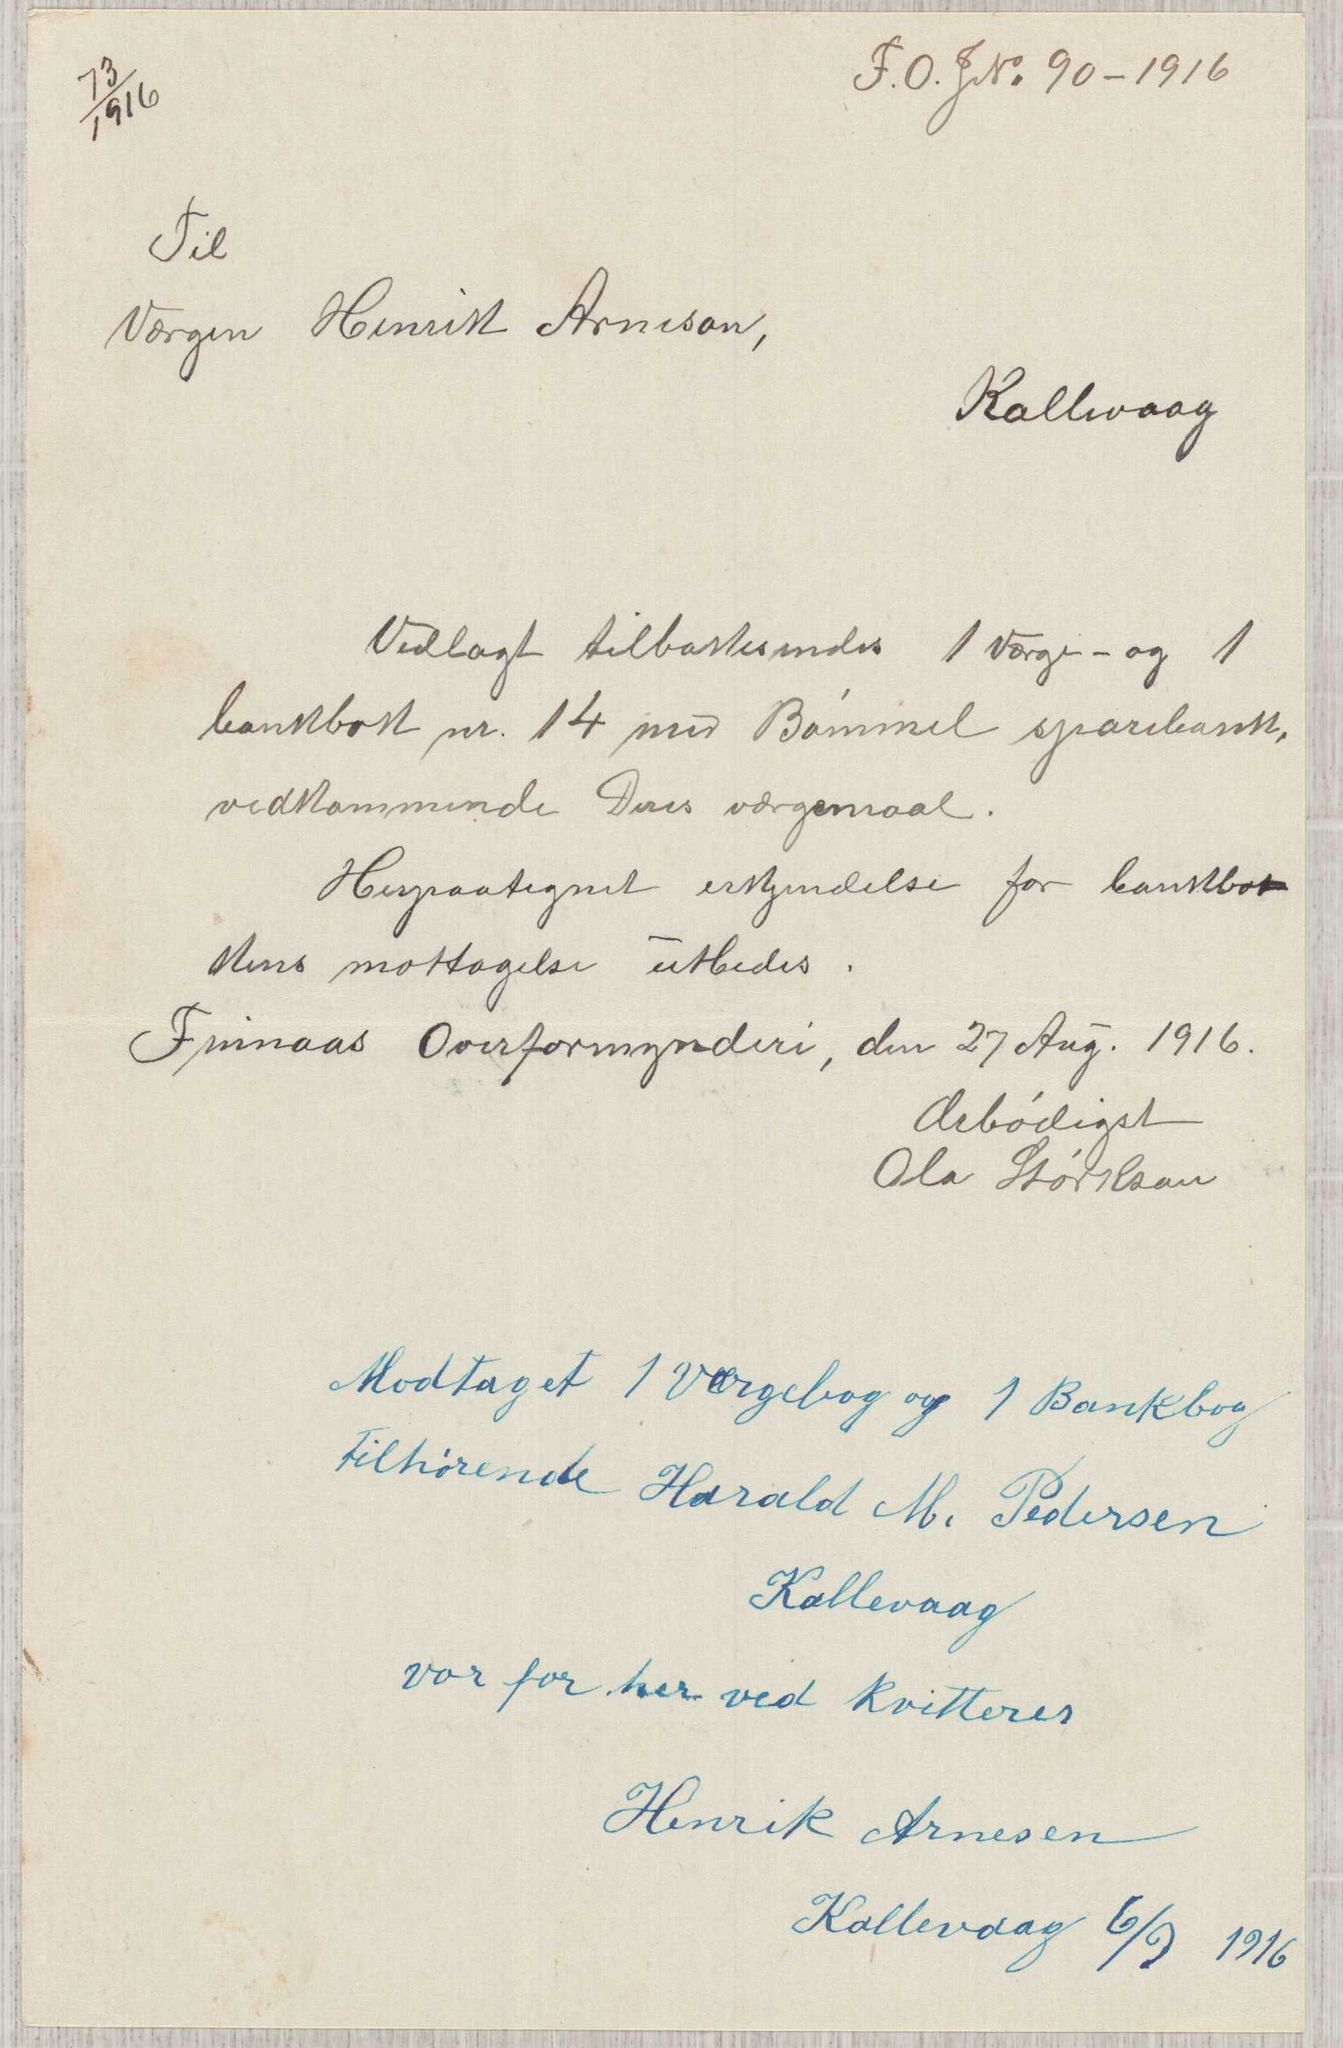 73/1916
F. O. J No. 90 – 1916
Til
Værgen Henrik Arnesen,
Kallevaag
Vedlagt tilbakesendes 1 værge- og 1
bankbok nr. 14 med Bømmel sparebank,
vedkommende Deres værgemaal.
Herpaategnet erkjendelse for bankbo
kens mottagelse utbedes.
Finnaas Overformynderi, den 27 Aug. 1916.
Ærbødigst
Ola Størkson
Modtaget 1 Værgebog og 1 Bankbog
tilhørende Harald M. Pedersen
Kallevaag
vor for her ved kvitteres
Henrik Arnesen
Kallevaag 6/9 1916